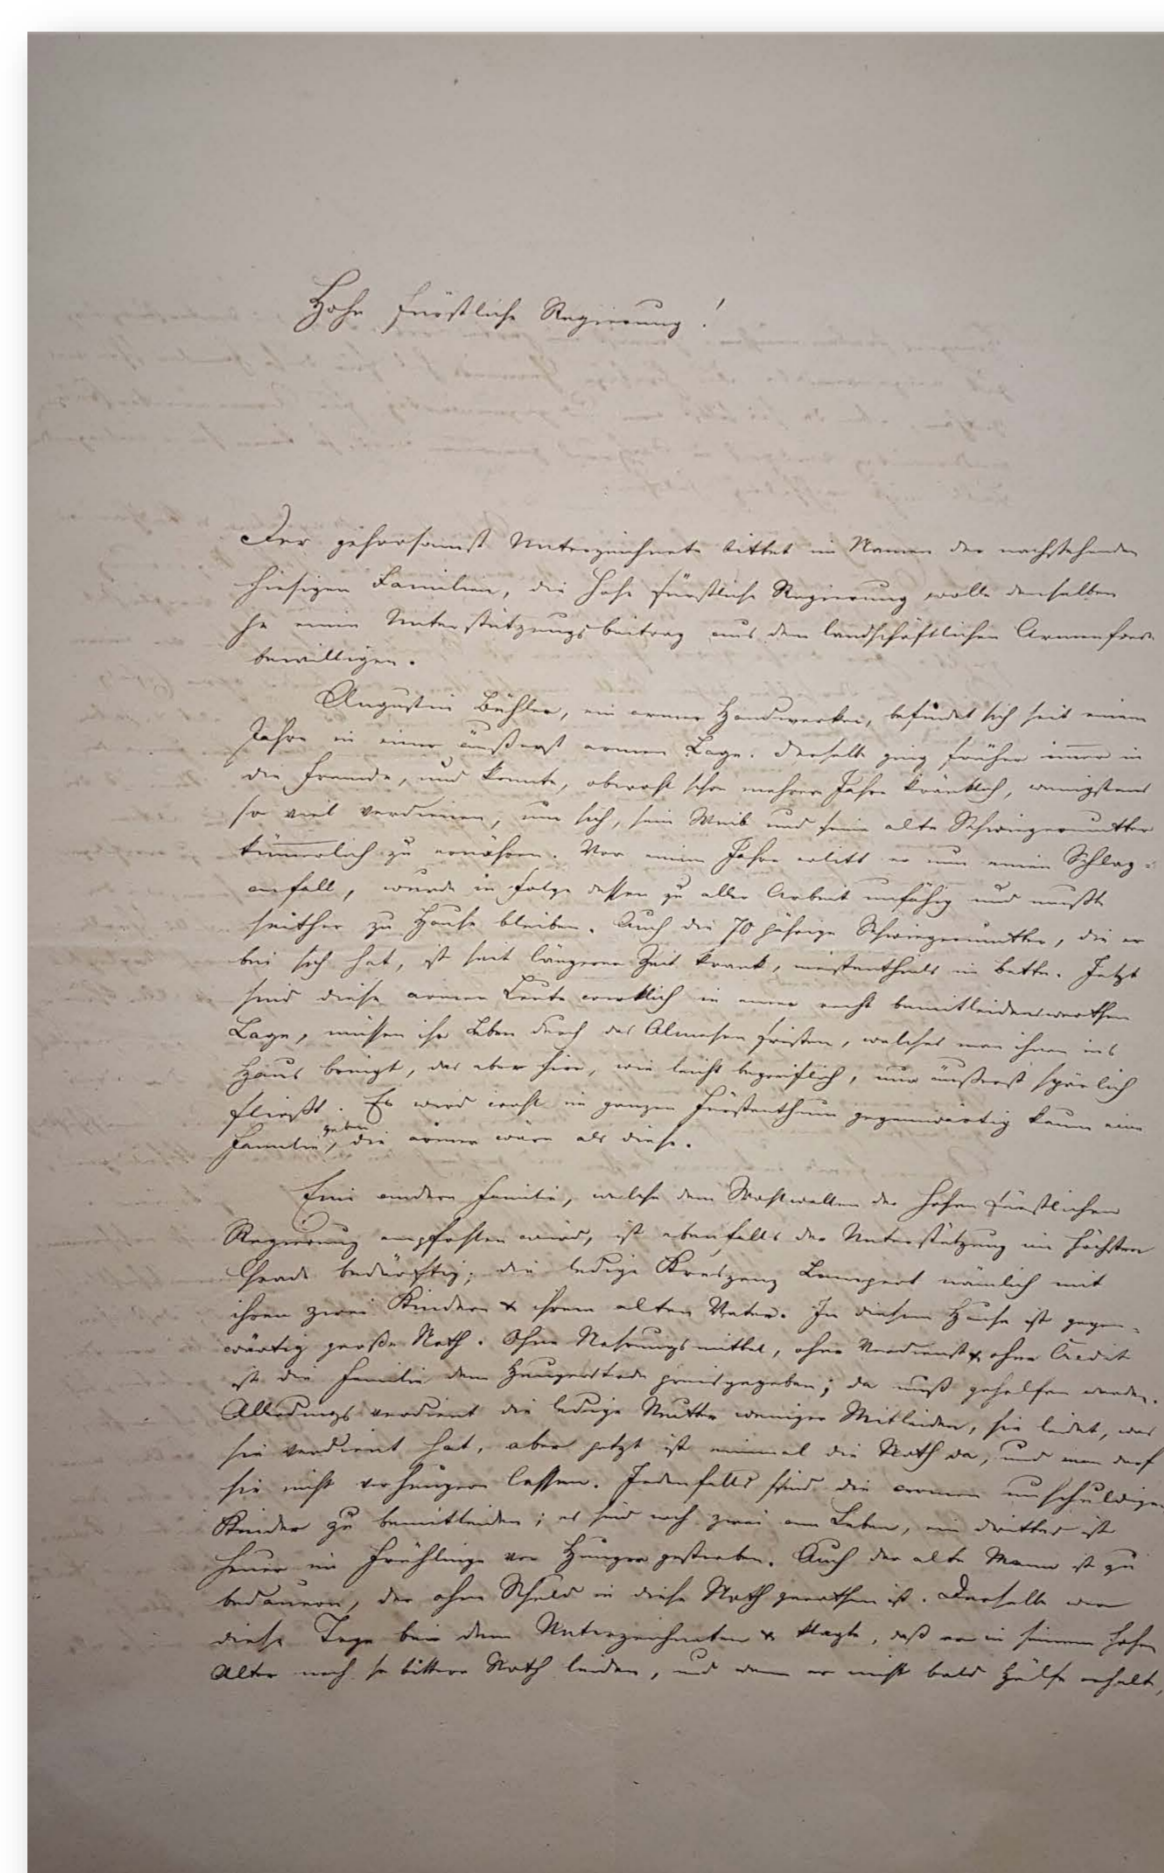 Hohe fürstliche Regierung!
Der gehorsamst Unterzeichnete bittet im Namen der nachstehenden
hiesigen Familien, die hohe fürstliche Regierung wolle denselben
je einen Unterstützungsbeitrag aus dem landschäftlichen Armenfonde
bewilligen.
Augustin Bühler, ein armer Handwerker, befindet sich seit einem
Jahre in einer äußerst armen Lage. Derselbe ging früher immer in
die Fremde, und konnte, obwohl schon mehrere Jahre kränklich, wenigstens
so viel verdienen, um sich, sein Weib und seine alte Schwiegermutter
kümmerlich zu ernähren. Vor einem Jahre erlitt er nun einen Schlag-
anfall, wurde in Folge dessen zu aller Arbeit unfähig und mußte
seither zu Hause bleiben. Auch die 70 jährige Schwiegermutter, die er
bei sich hat, ist seit längerer Zeit krank, meistentheils im Bette. Jetzt
sind diese armen Leute wirklich in einer recht bemitleidenswerthen
Lage, müssen ihr Leben durch das Almosen fristen, welches man ihnen ins
Haus bringt, das aber hier, wie leicht begreiflich, nur äußerst spärlich
fließt. Es wird wohl im ganzen Fürstenthum gegenwärtig kaum eine
Familie geben, die ärmer wäre als diese.
Eine andere Familie, welche dem Wohlwollen der hohen fürstlichen
Regierung empfohlen wird, ist ebenfalls der Unterstützung im höchsten
Grade bedürftig; die ledige Kreszenz Lampert nämlich mit
ihren zwei Kindern & ihrem alten Vater. In diesem Hause ist gegen-
wärtig große Noth. Ohne Nahrungsmittel, ohne Verdienst & ohne Credit
ist die Familie dem Hungertode preisgegeben; da muß geholfen werden.
Allerdings verdient die ledige Mutter weniger Mitleiden, sie leidet, was
sie verdient hat, aber jetzt ist einmal die Noth da, und man darf
sie nicht verhungern lassen. Jedenfalls sind die armen unschuldigen
Kinder zu bemitleiden; es sind noch zwei am Leben, ein drittes ist
heuer im Frühlinge vor Hunger gestorben. Auch der alte Mann ist zu
bedauern, der ohne Schuld in diese Noth gerathen ist. Derselbe war
diese Tage bei dem Unterzeichneten & klagte, daß er in seinem hohen
Alter noch so bittere Noth leiden, und wenn er nicht bald Hülfe erhalte,